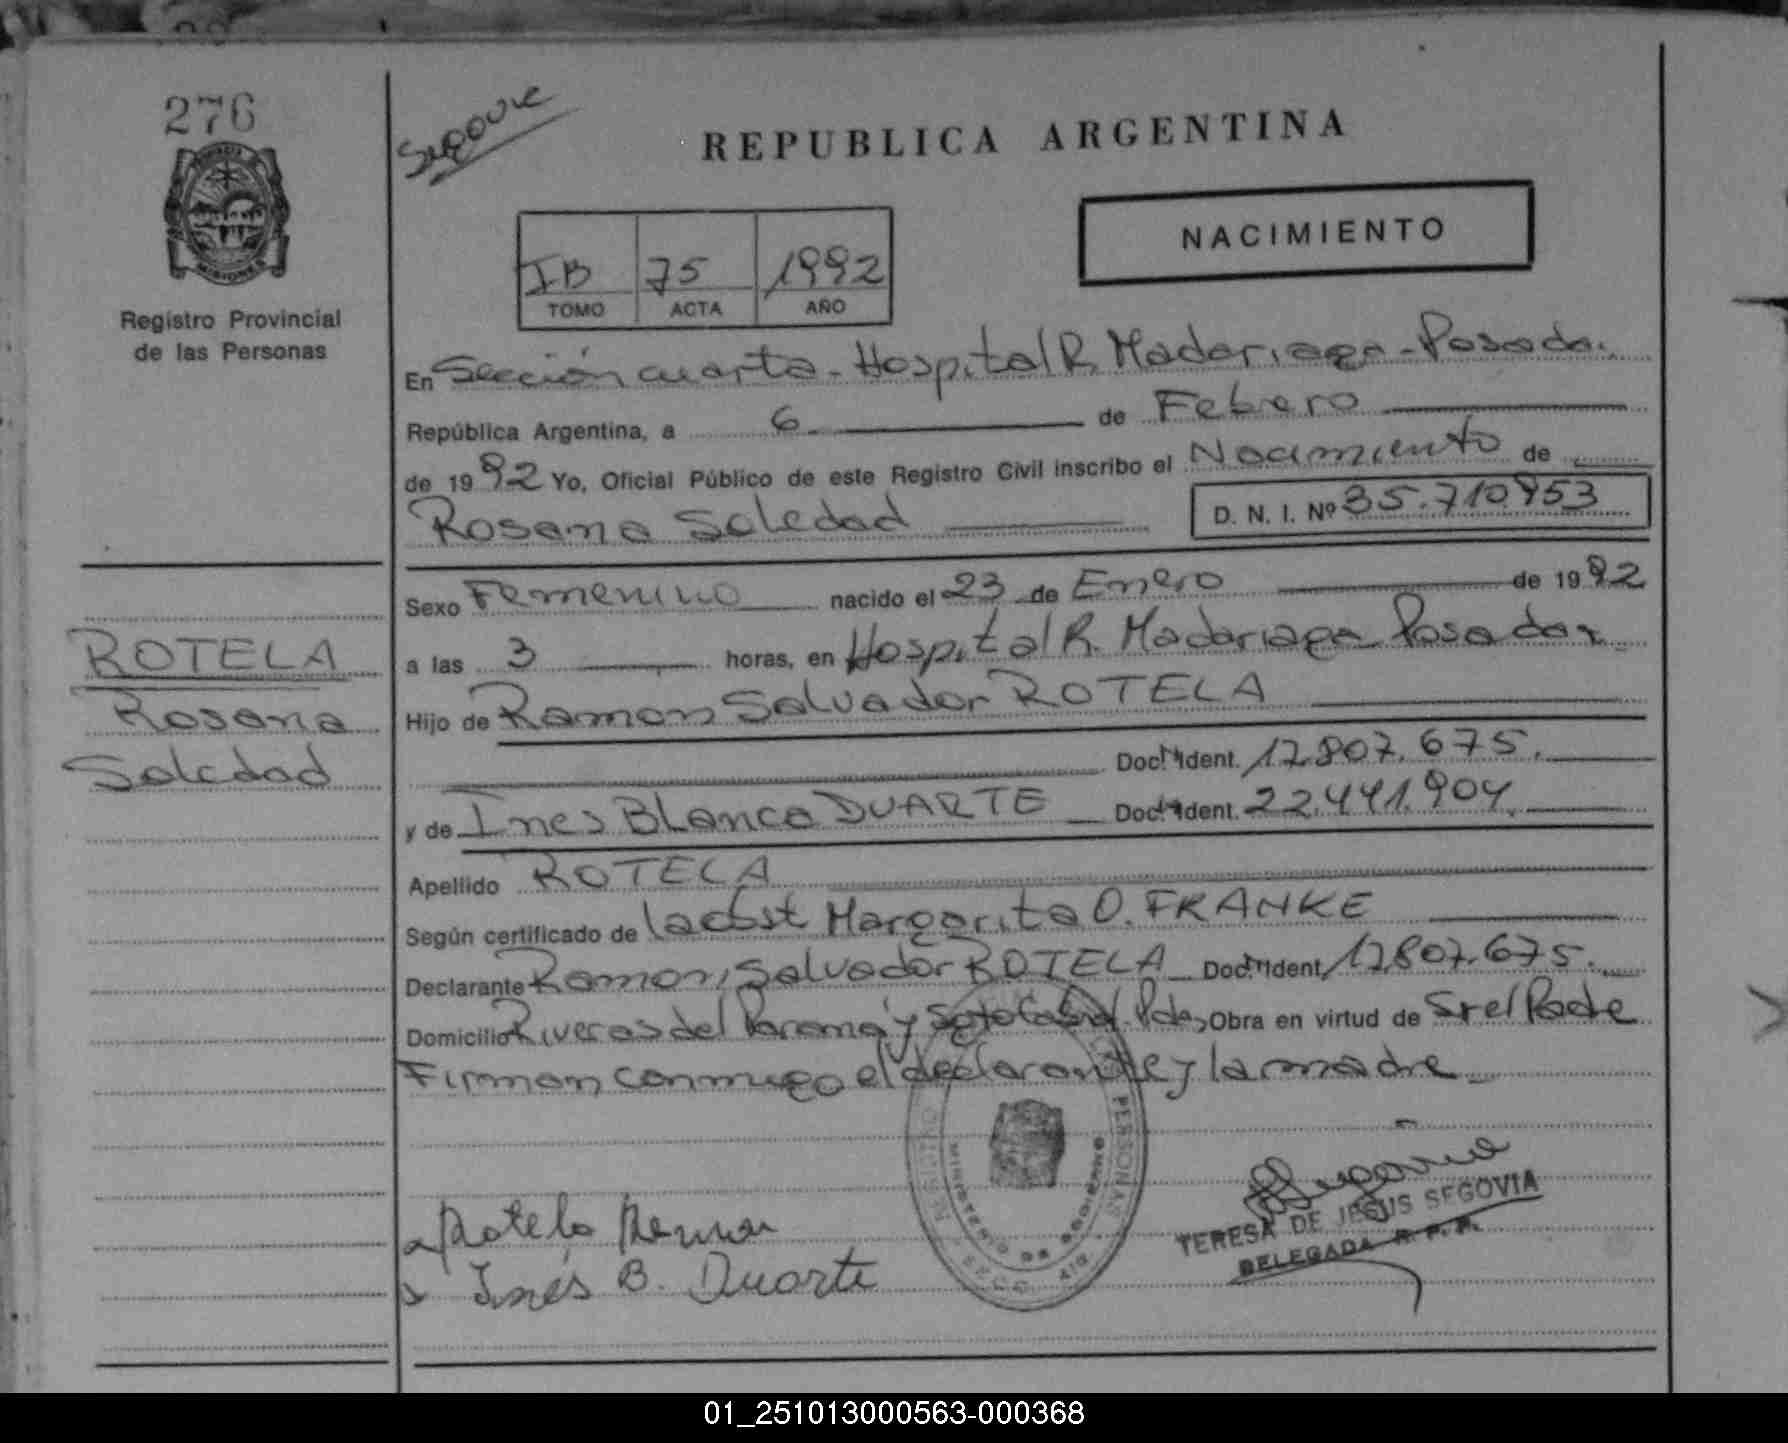 276
Segovia
REPUBLICA ARGENTINA
PROVINCIA DE
MISIONES
NACIMIENTO
IB 75 1992
TOMO ACTA AÑO
Registro Provincial
de las Personas
En Sección cuarta - Hospital R. Madariaga - Posadas.
República Argentina, a 6 de Febrero
de 1992 Yo, Oficial Público de este Registro Civil inscribo el Nacimiento de
Rosana Soledad D. N. I. Nº 35.710.953
Sexo Femenino nacido el 23 de Enero de 1992
ROTELA
a las 3 horas, en Hospital R. Madariaga Posadas
Rosana
Hijo de Ramon Salvador ROTELA
Soledad
Doc. Ident. 17.807.675.
y de Ines Blanca DUARTE Doc. Ident. 22.441.904.
Apellido ROTELA
Según certificado de la obst Margarita O. FRANKE
Declarante Ramon Salvador ROTELA Doc. Ident. 17.807.675.
Domicilio Riveras del Parana y Soto Cabral. Pdas, Obra en virtud de Ser el Padre
Firman conmigo el declarante y la madre
PERSONAS
MINISTERIO DE GOBIERNO
Rotela Ramon
Inés B. Duarte
TERESA DE JESUS SEGOVIA
DELEGADA R. P. P.
01_251013000563-000368